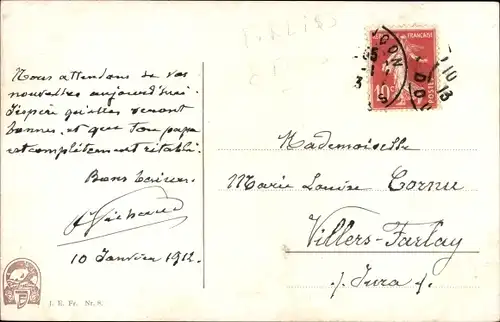 Nous attendons de vos
nouvelles aujourd'hui.
J'espère qu'elles seront
bonnes, et que ton papa
est complètement rétabli.
Bons baisers.
10 Janvier 1912.
J. E. Fr. Nr. 8.
FRANÇAISE
10c
POSTES
Mademoiselle
Marie Louise Cornu
Villers-Farlay
(Jura).